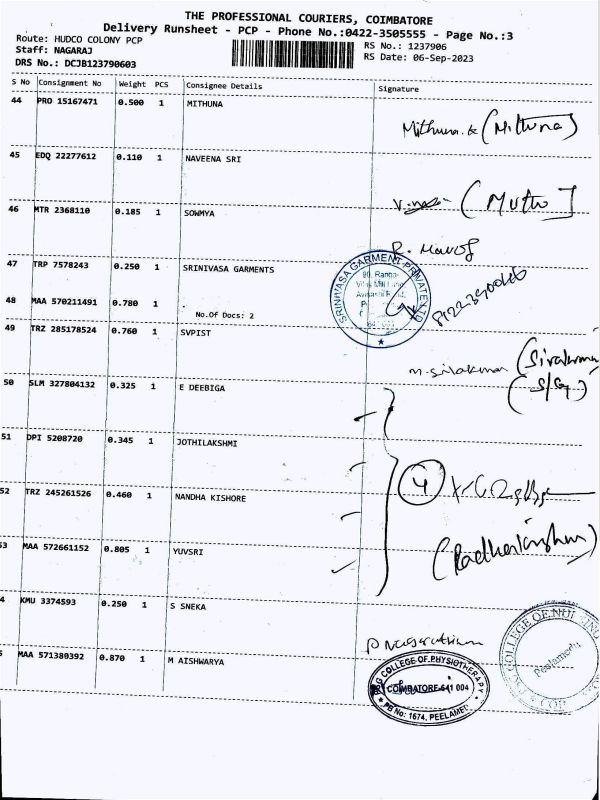 THE PROFESSIONAL COURIERS, COIMBATORE
Delivery Runsheet - PCP - Phone No.:0422-3505555 - Page No.:3
Route: HUDCO COLONY PCP
RS No.: 1237906
Staff: NAGARAJ
RS Date: 06-Sep-2023
DRS No.: DCJB123790603
S No Consignment No Weight PCS Consignee Details Signature
44 PRO 15167471 0.500 1 MITHUNA
Mithuna.k (Mithuna)
45 EDQ 22277612 0.110 1 NAVEENA SRI
(Muthu]
46 MTR 2368110 0.185 1 SOWMYA
47 TRP 7578243 0.250 1 SRINIVASA GARMENTS
SRINIVASA GARMENT PRIVATE LTD
48 MAA 570211491 0.780 1
No.Of Docs: 2
49 TRZ 285178524 0.760 1 SVPIST
50 SLM 327804132 0.325 1 E DEEBIGA
51 DPI 5208720 0.345 1 JOTHILAKSHMI
4
52 TRZ 245261526 0.460 1 NANDHA KISHORE
53 MAA 572661152 0.805 1 YUVSRI
4 KMU 3374593 0.250 1 S SNEKA
COLLEGE OF NURSING
Peelamedu
5 MAA 571380392 0.870 1 M AISHWARYA
COLLEGE OF PHYSIOTHERAPY
COIMBATORE-641 004
PB No: 1674, PEELAMED